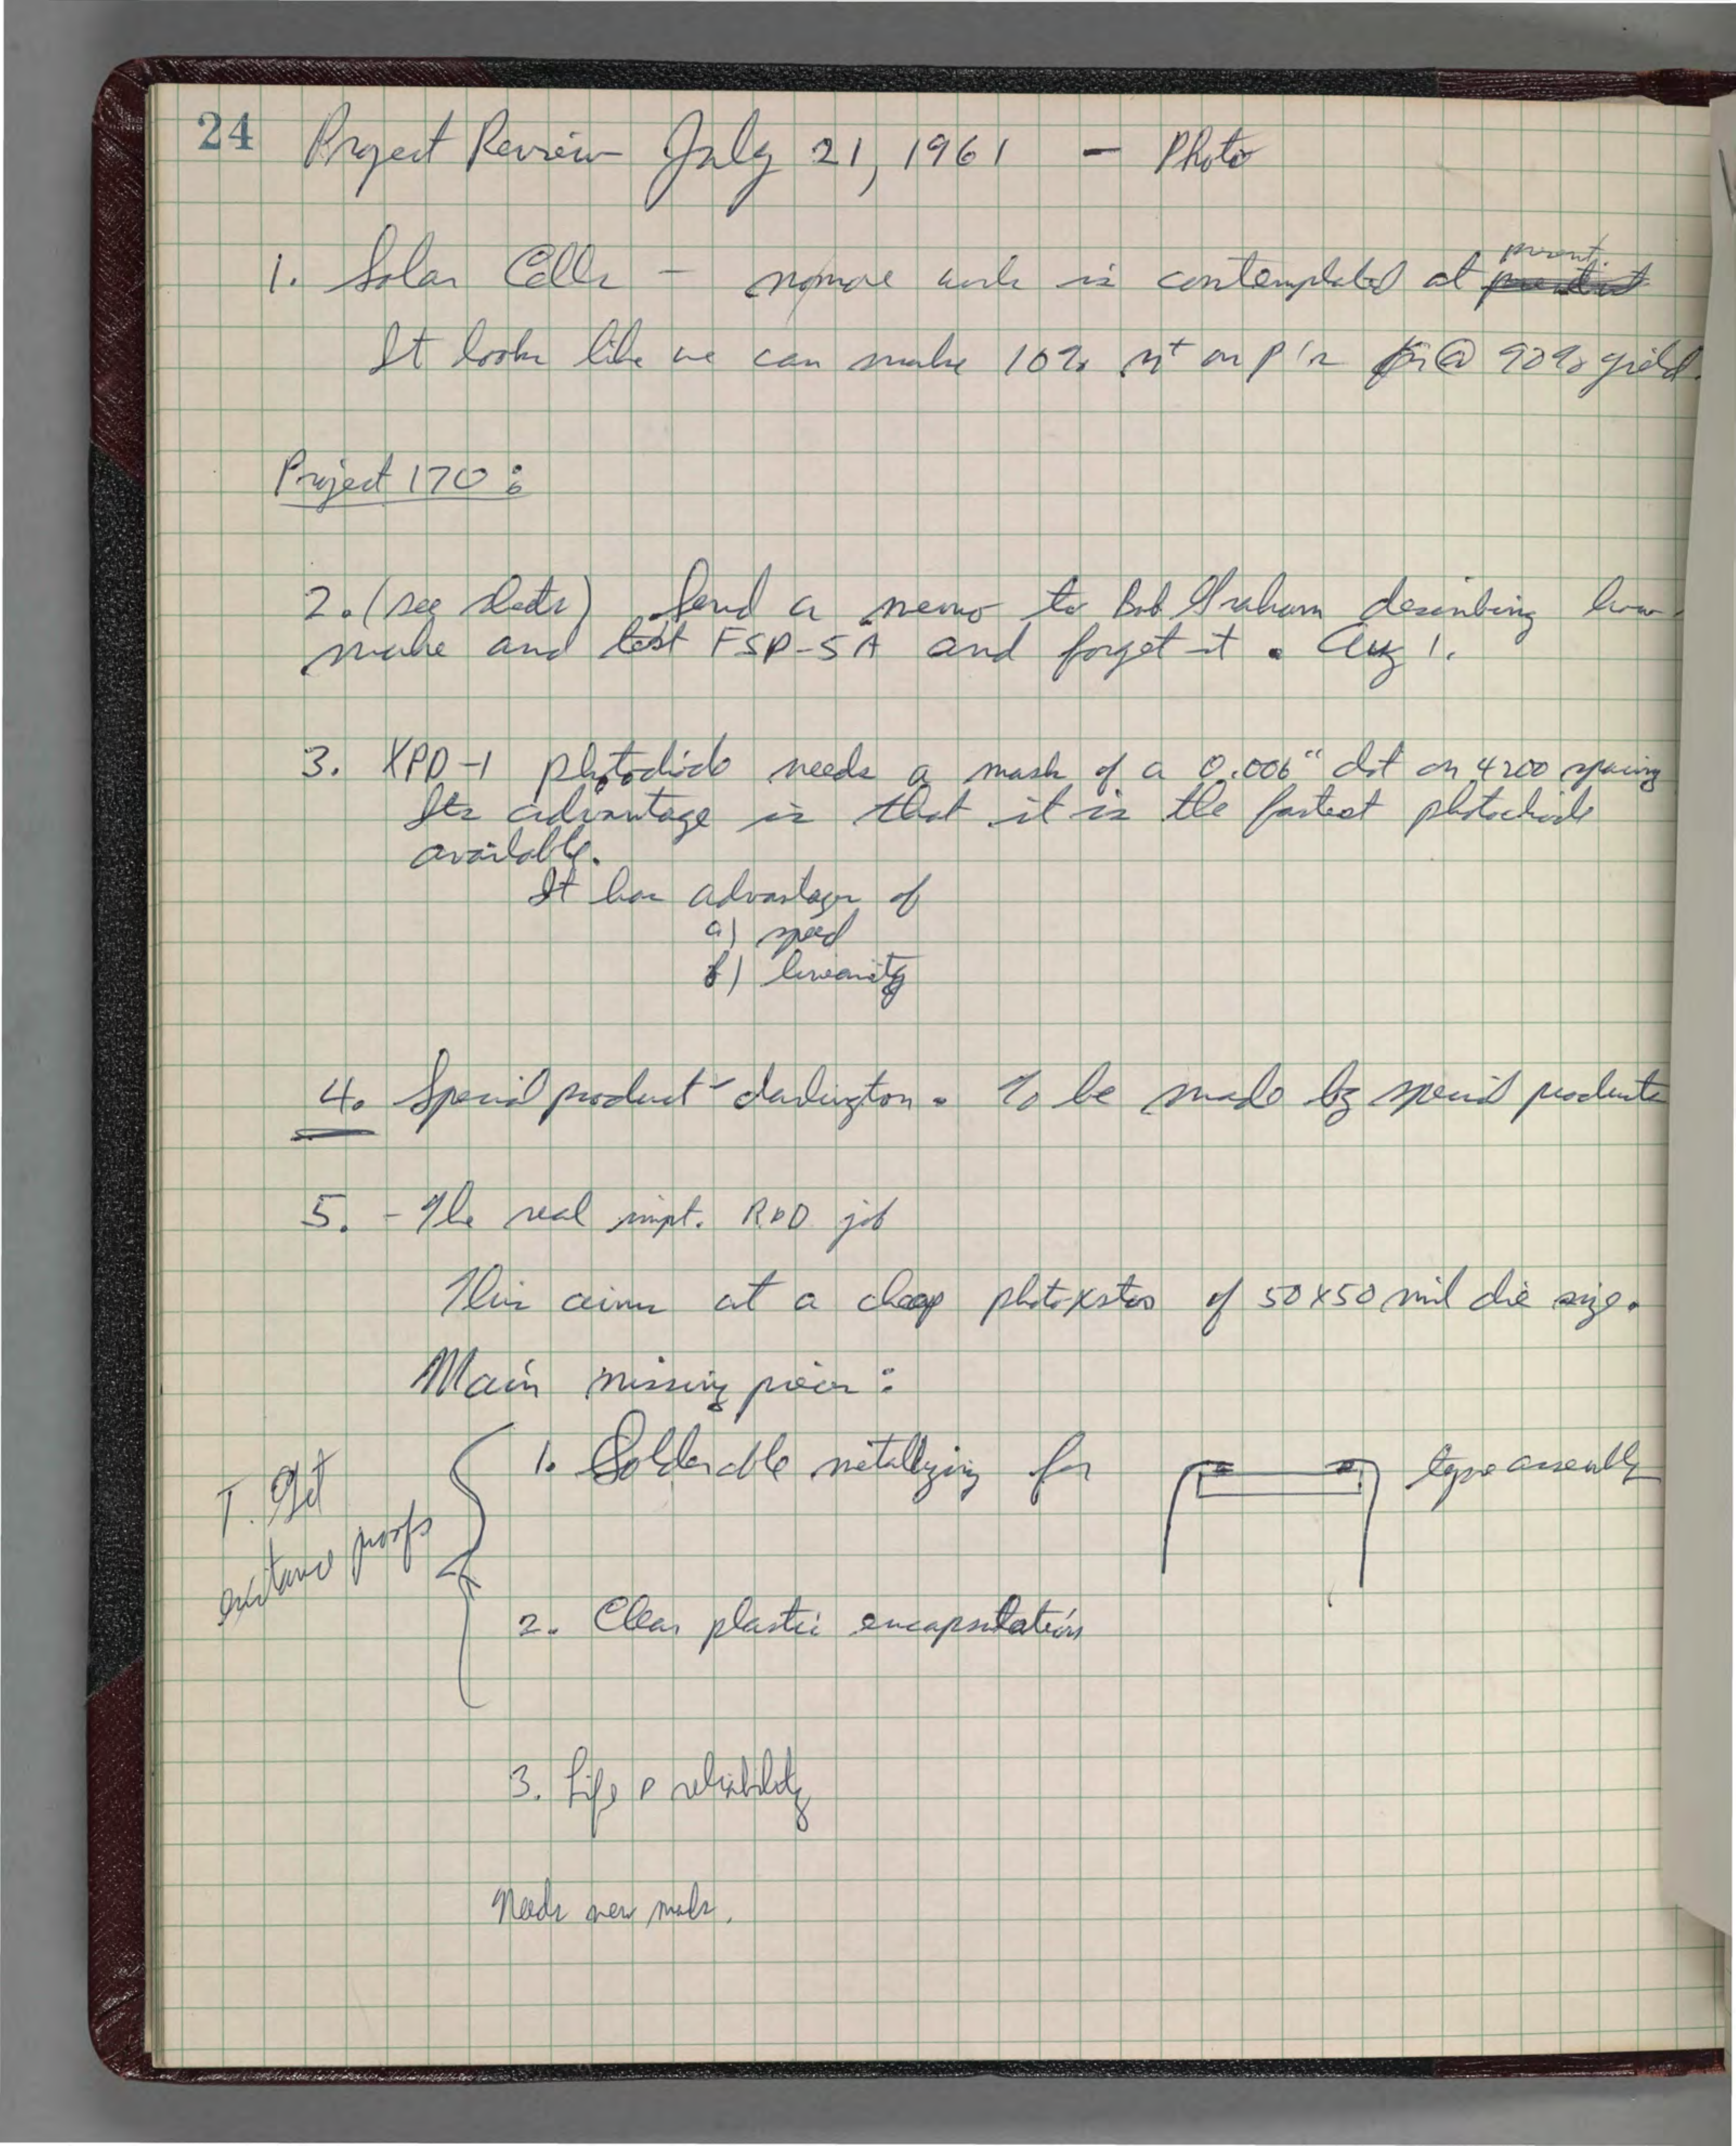 24 Project Review July 21, 1961 - Photo
1. Solar Cells - no more work is contemplated at present.
It looks like we can make 10% n+ on p's @ 90% yield.
Project 170:
2. (see sheets) Send a memo to Bob Graham describing how
make and test FSP-5A and forget it. Aug 1.
3. XPD-1 photodiode needs a mask of a 0.006" dot on 4200 spacing
Its advantage is that it is the fastest photodiode
available.
It has advantages of
a) speed
b) linearity
4. Special product - darlington. To be made by special products
5. - The real impt. R&D job
This aims at a cheap photoxstor of 50x50 mil die size.
Main missing pieces:
1. Solderable metallizing for type assembly
I. Get
existance proofs
2. Clear plastic encapsulation
3. Life & reliability
Needs new mask.